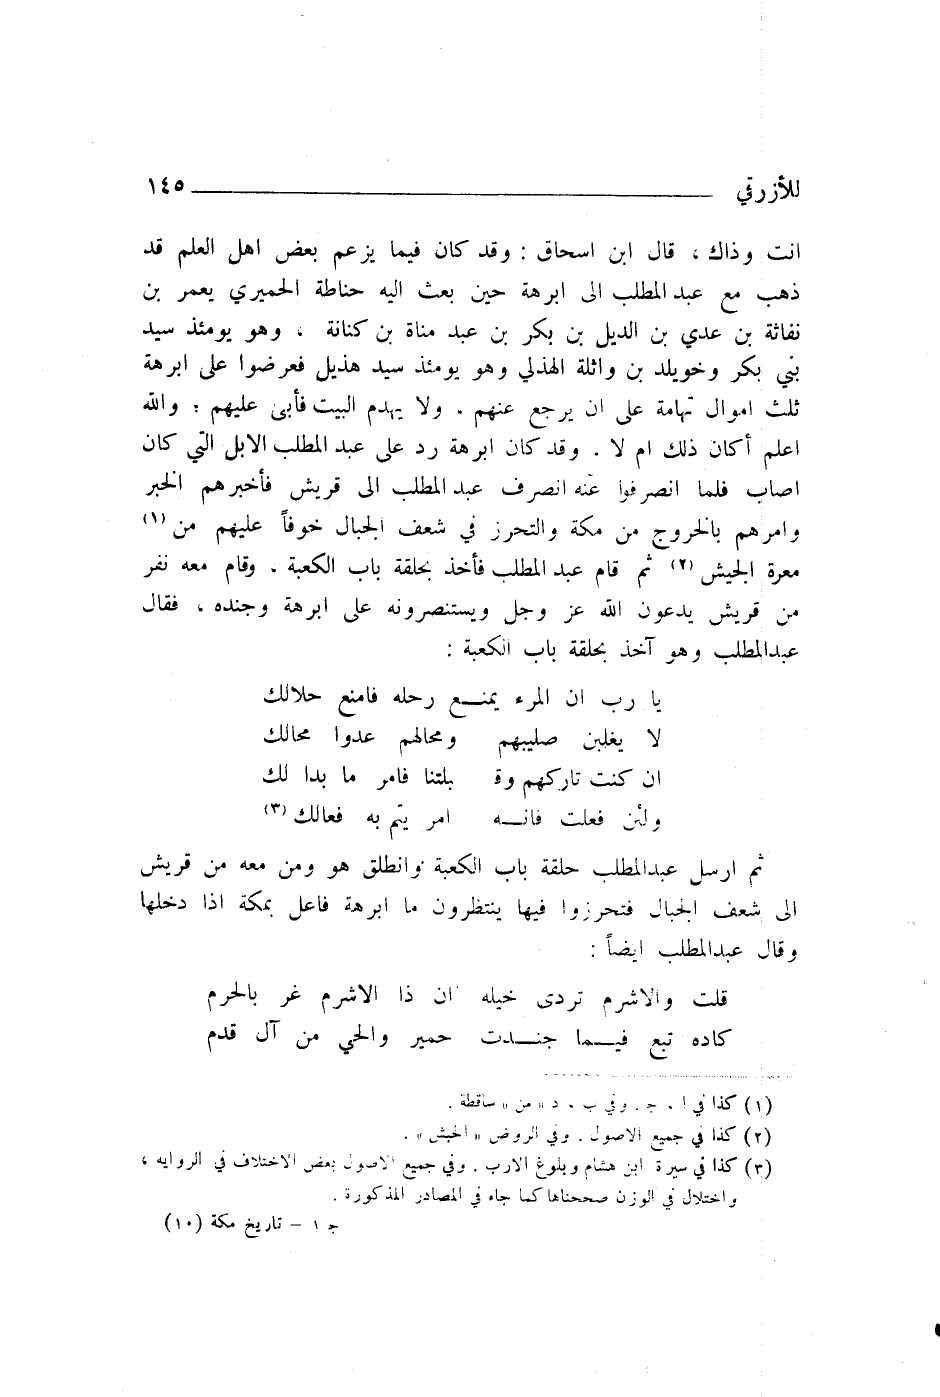 للأزرقي ١٤٥
انت وذاك ، قال ابن اسحاق : وقد كان فيما يزعم بعض اهل العلم قد
ذهب مع عبد المطلب الى ابرهة حين بعث اليه حناطة الحميري يعمر بن
نفاثة بن عدي بن الديل بن بكر بن عبد مناة بن كنانة ، وهو يومئذ سيد
بني بكر وخويلد بن واثلة الهذلي وهو يومئذ سيد هذيل فعرضوا على ابرهة
ثلث اموال تهامة على ان يرجع عنهم . ولا يهدم البيت فأبى عليهم ؛ والله
اعلم أكان ذلك ام لا . وقد كان ابرهة رد على عبد المطلب الابل التي كان
اصاب فلما انصرفوا عنه انصرف عبد المطلب الى قريش فأخبرهم الخبر
وامرهم بالخروج من مكة والتحرز في شعف الجبال خوفاً عليهم من (١)
معرة الجيش (٢) ثم قام عبد المطلب فأخذ بحلقة باب الكعبة . وقام معه نفر
من قريش يدعون الله عز وجل ويستنصرونه على ابرهة وجنده ، فقال
عبدالمطلب وهو آخذ بحلقة باب الكعبة :
يا رب ان المرء يمنـــع رحله فامنع حلالك
لا يغلبن صليبهم ومحالهم عدوا محالك
ان كنت تاركهم وقـ بلتنا فامر ما بدا لك
ولئن فعلت فانـــه امر يتم به فعالك (٣)
ثم ارسل عبدالمطلب حلقة باب الكعبة وانطلق هو ومن معه من قريش
الى شعف الجبال فتحرزوا فيها ينتظرون ما ابرهة فاعل بمكة اذا دخلها
وقال عبدالمطلب ايضاً :
قلت والاشرم تردى خيله ان ذا الاشرم غر بالحرم
كاده تبع فيـــما جنـــدت حمير والحي من آل قدم
(١) كذا في ا ، ج . وفي ب ، د « من » ساقطة .
(٢) كذا في جميع الاصول . وفي الروض « الحبش » .
(٣) كذا في سيرة ابن هشام وبلوغ الارب . وفي جميع الاصول بعض الاختلاف في الروايه ،
واختلال في الوزن صححناها كما جاء في المصادر المذكورة .
ج ١ – تاريخ مكة (١٠)